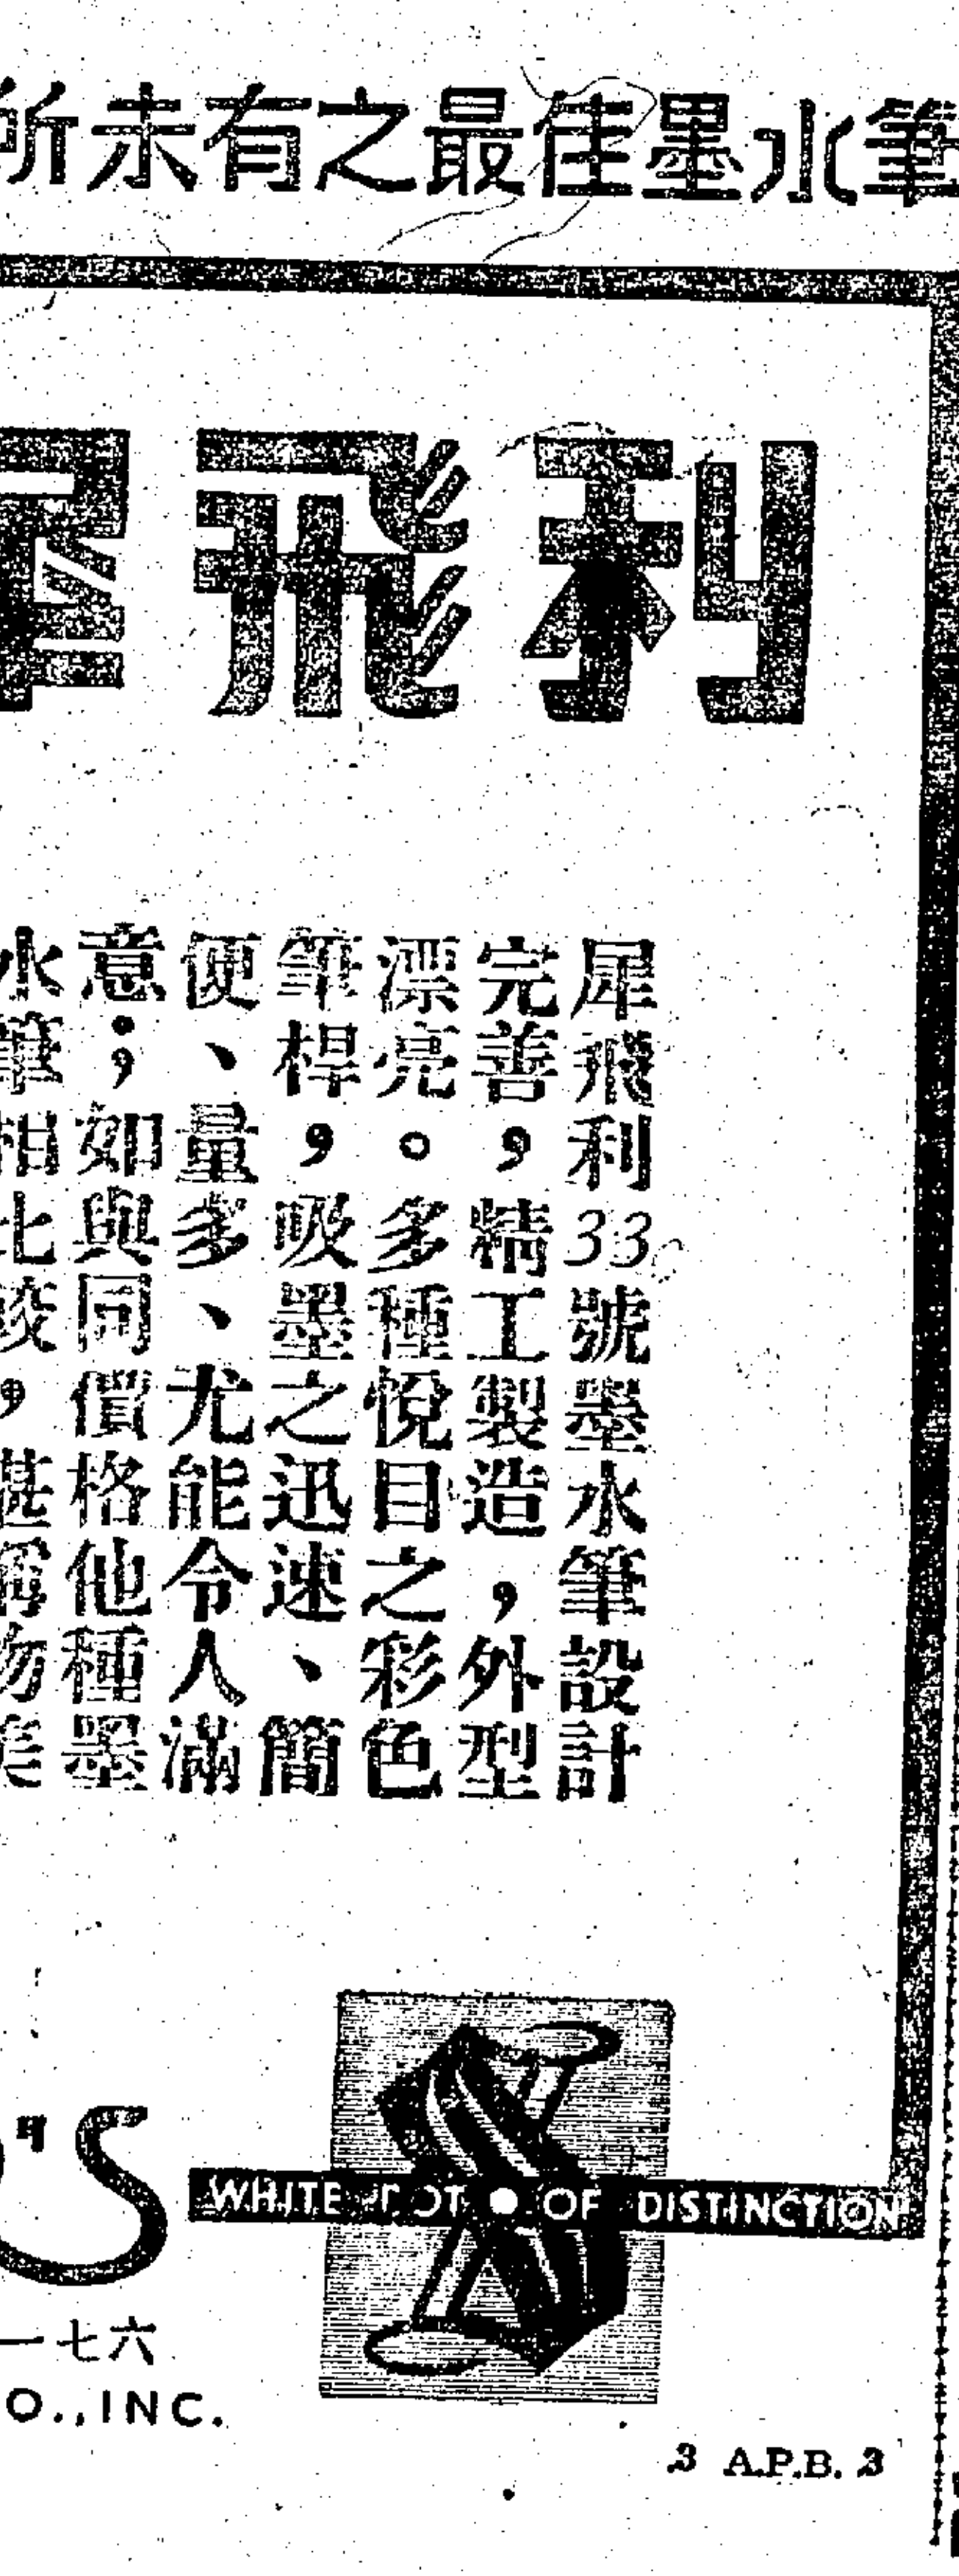 所未有之最佳墨水筆
犀飛利
犀飛利33號墨水筆設計
完善，精工製造，外型
漂亮。多種悅目之彩色
筆桿，吸墨之迅速、簡
便、量多、尤能令人滿
意；如與同價格他種墨
水筆相比較，堪稱物美
'S
WHITE DOT OF DISTINCTION
一七六
O., INC.
3 A.P.B. 3